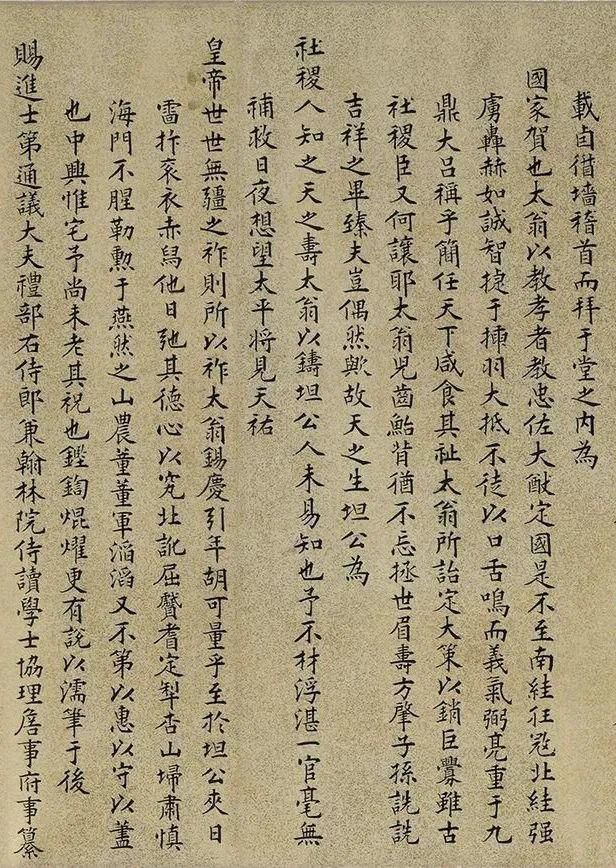 載卣僣墻稽首而拜于堂之内為
國家賀也太翁以教孝者教忠佐大猷定國是不至南絓狂寇北絓强
虜轟赫如誠智捷于揷羽大抵不徒以口舌鳴而義氣弼亮重于九
鼎大呂稱乎簡任天下咸食其祉太翁所詒定大策以銷巨釁雖古
社稷臣又何讓耶太翁兒齒鮐背猶不忘拯世眉壽方肇子孫詵詵
吉祥之畢臻夫豈偶然歟故天之生坦公為
社稷人知之天之壽太翁以鑄坦公人未易知也予不材浮湛一官毫無
補救日夜想望太平將見天祐
皇帝世世無疆之祚則所以祚太翁錫慶引年胡可量乎至於坦公夾日
雷抃衮衣赤舄他日弛其德心以究北訛屈贇耆定犁杏山埽肅慎
海門不腥勒勲于燕然之山農董董軍滔滔又不第以惠以守以蓋
也中興惟宅予尚未老其祝也鏗鍧焜燿更有說以濡筆于後
賜進士第通議大夫禮部右侍郎兼翰林院侍讀學士協理詹事府事纂